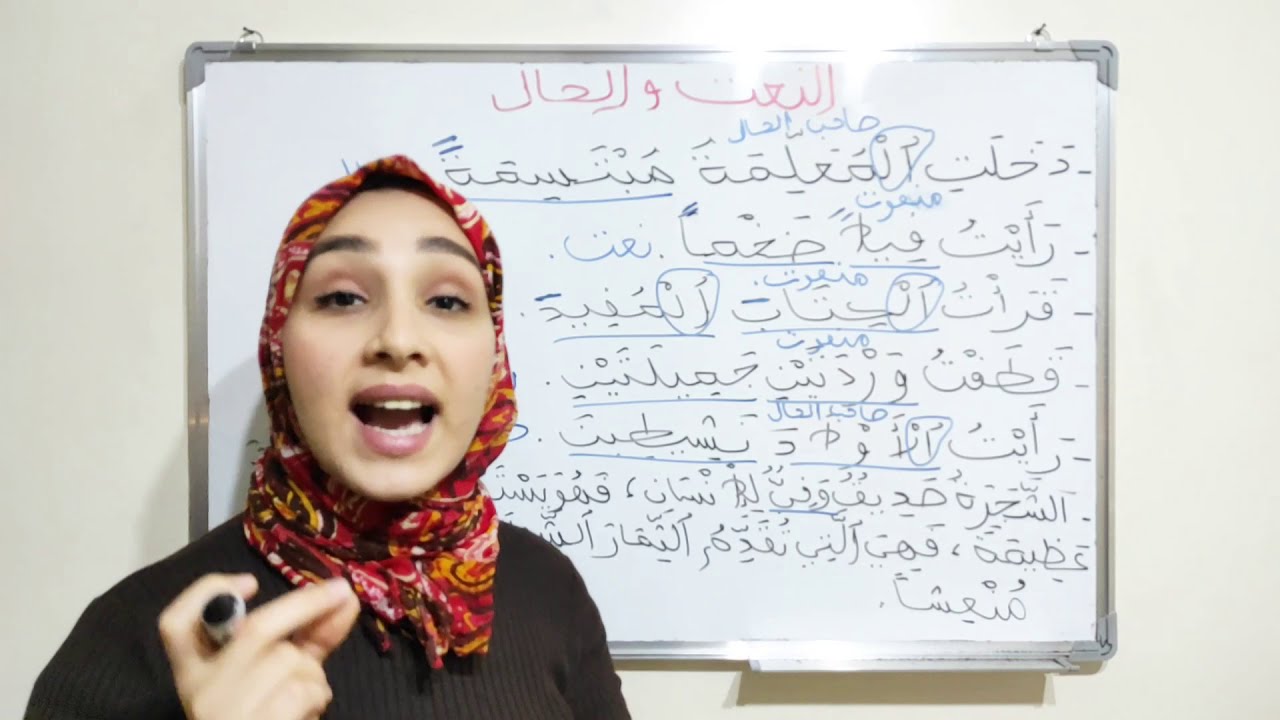 النعت والحال
صاحب الحال
- دَخَلَتِ ٱلْمُعَلِّمَةُ مُبْتَسِمَةً
منعوت
- رَأَيْتُ فِيلاً ضَخْماً. نعت.
منعوت.
- قَرَأْتُ ٱلْكِتَابَ ٱلْمُفِيدَ.
منعوت
- قَطَفْتُ وَرْدَتَيْنِ جَمِيلَتَيْنِ.
صاحب الحال
- رَأَيْتُ ٱلْأَوْلَادَ نَشِيطِينَ.
- ٱلشَّجَرَةُ صَدِيقٌ وَفِيٌّ لِلْإِنْسَانِ، فَهُوَ
عَظِيمَةً، فَهِيَ ٱلَّتِي تُقَدِّمُ ٱلثِّمَارَ
مُنْعِشاً.